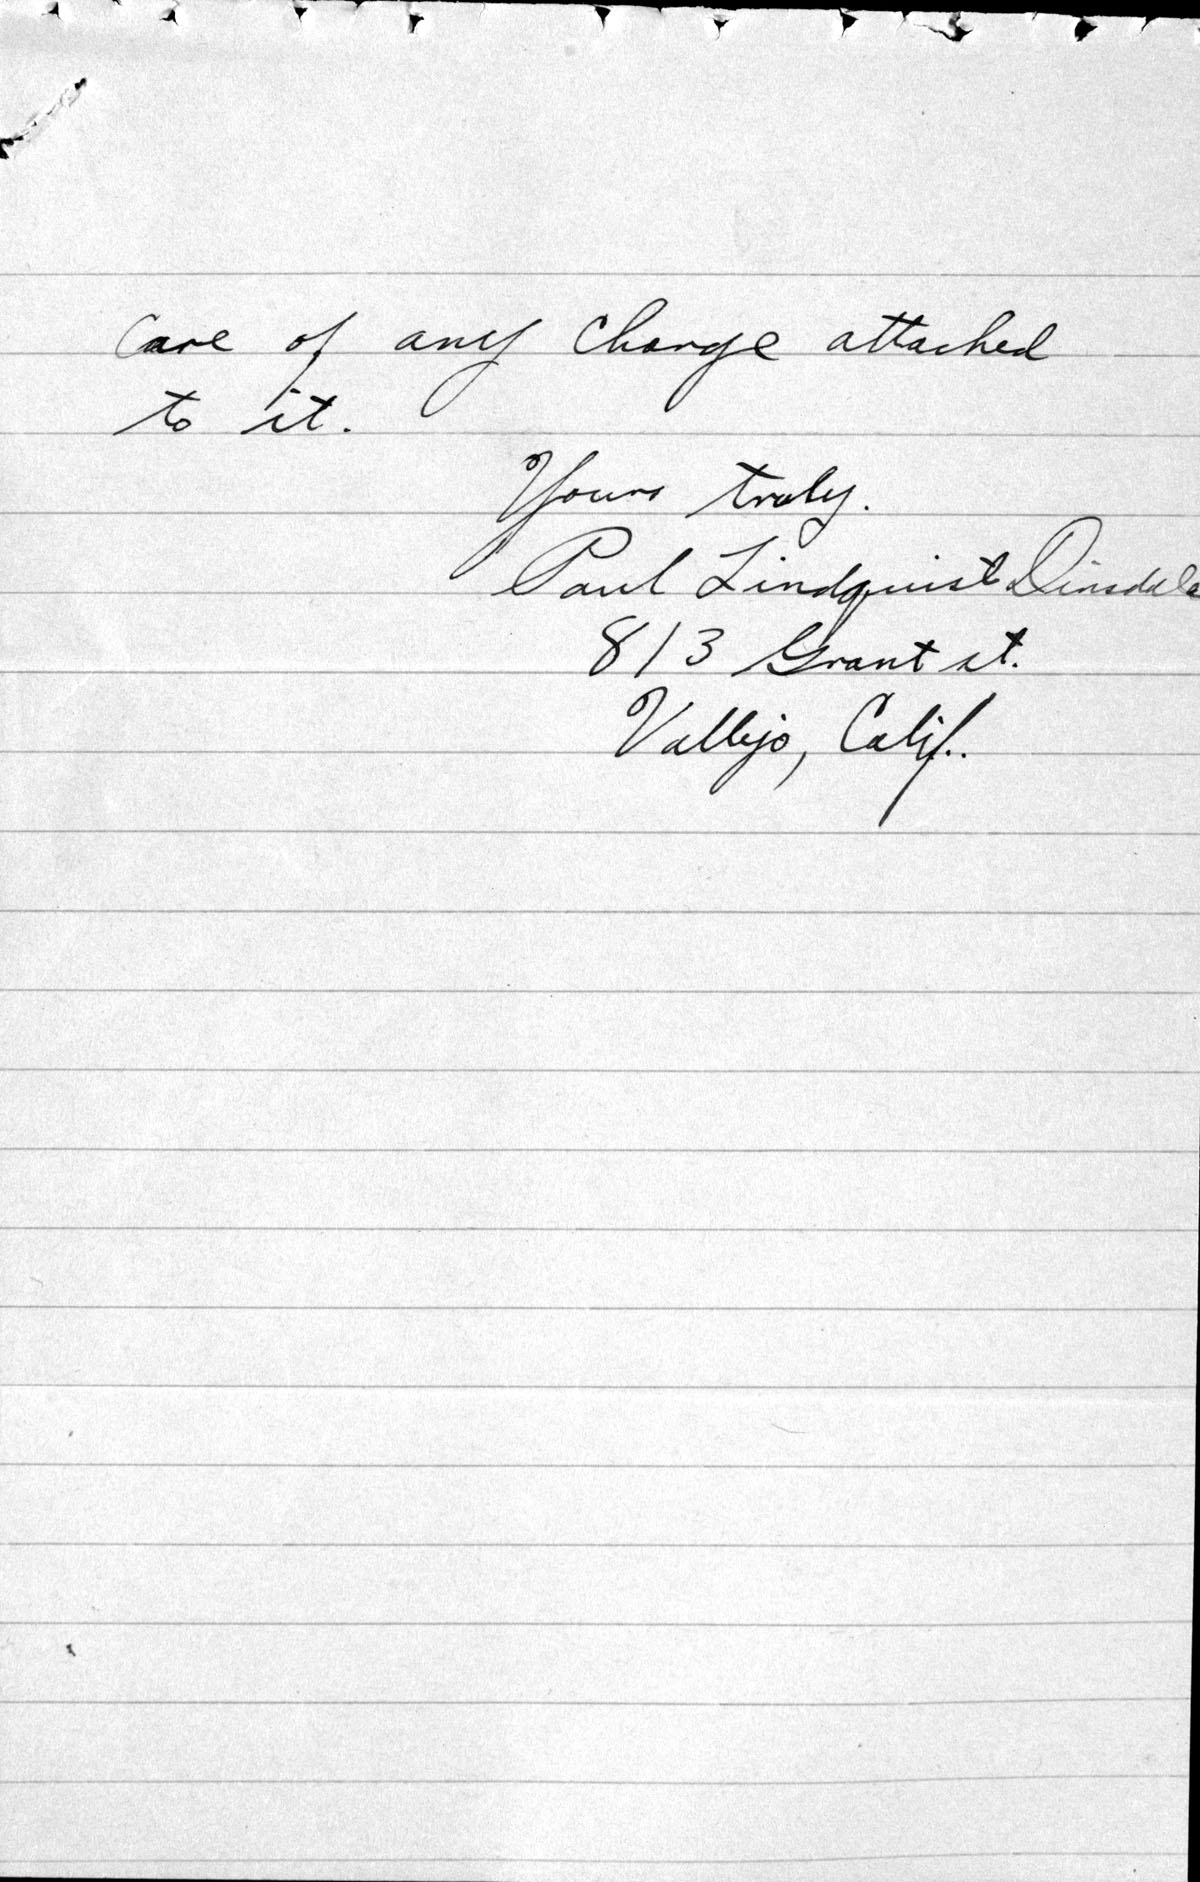 Care of any charge attached
to it.
Yours truly.
Paul Lindquist Dinsdale
813 Grant st.
Vallejo, Calif..